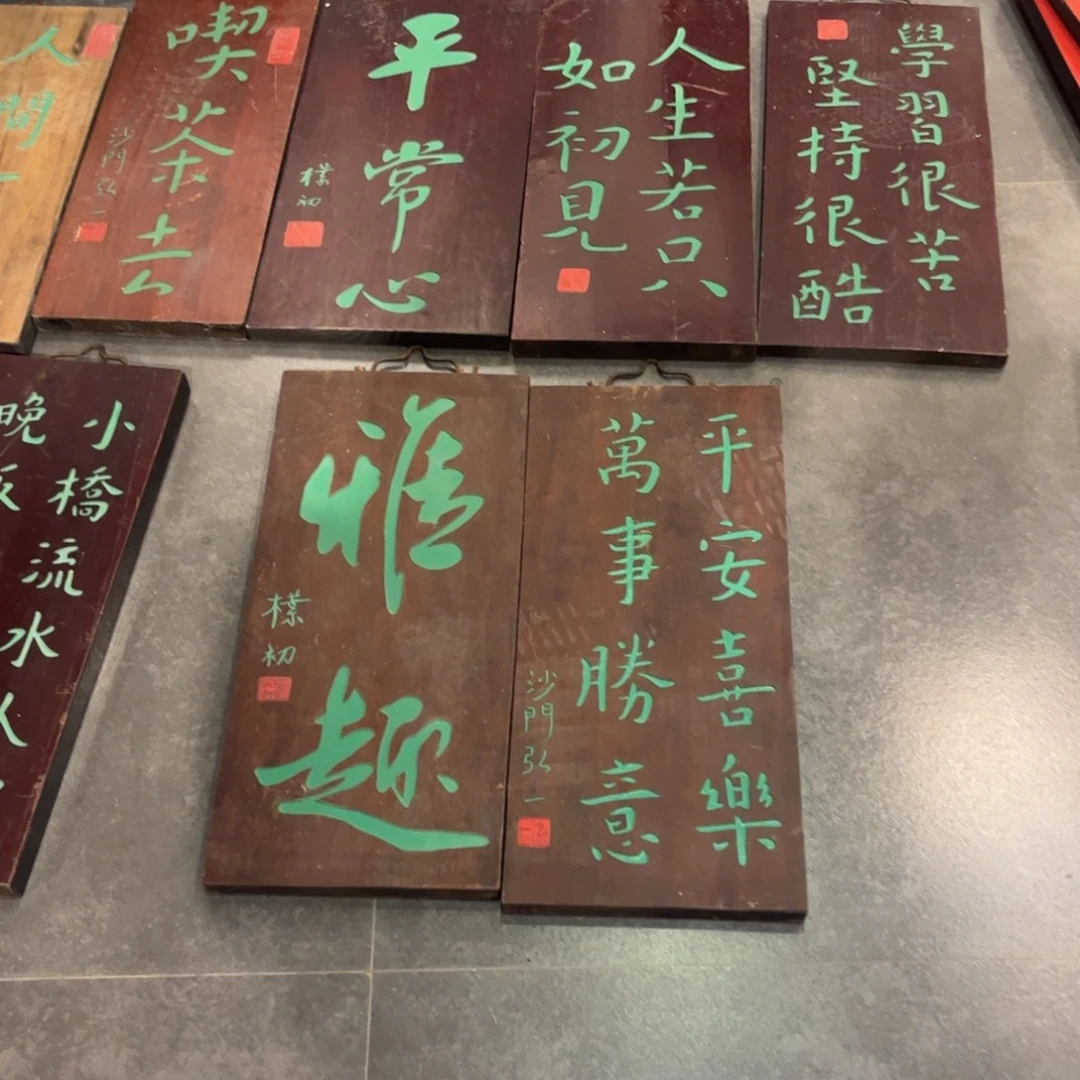 人間
喫茶去
沙門弘一
平常心
樸初
人生若只
如初見
學習很苦
堅持很酷
小橋流水人
晚
雅趣
樸初
平安喜樂
萬事勝意
沙門弘一